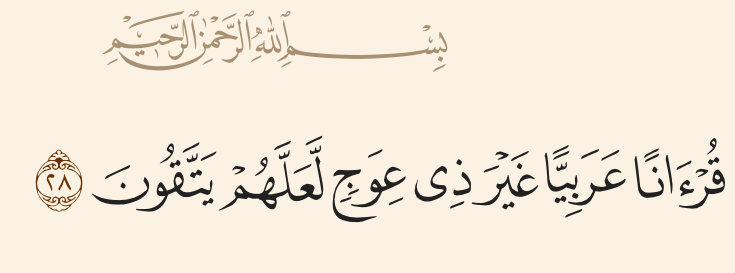 بِسْمِ ٱللَّهِ ٱلرَّحْمَٰنِ ٱلرَّحِيمِ
قُرْءَانًا عَرَبِيًّا غَيْرَ ذِى عِوَجٍ لَّعَلَّهُمْ يَتَّقُونَ ٢٨